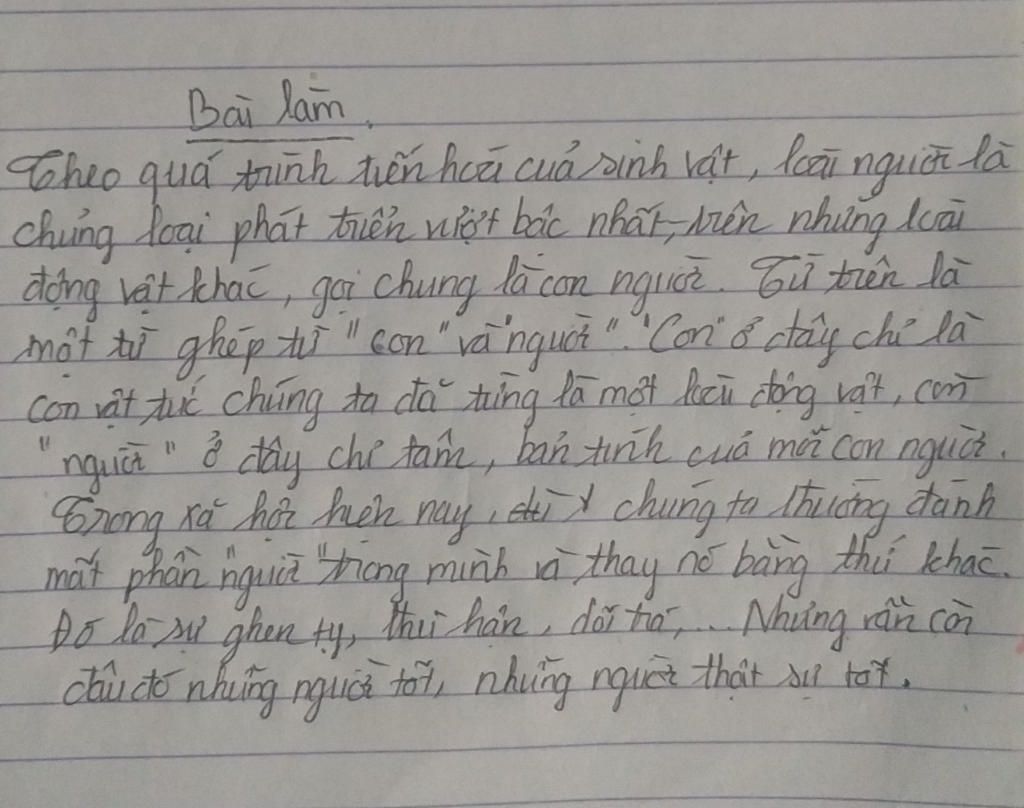 Bài làm.
Theo quá trình tiến hoá của sinh vật, loài người là
chủng loại phát triển vượt bậc nhất, trên những loài
động vật khác, gọi chung là con người. Từ trên là
một từ ghép từ "con" và "người". "Con" ở đây chỉ là
con vật tức chúng ta đã từng là một loài động vật, còn
"người" ở đây chỉ tâm, bản tính của mỗi con người.
Trong xã hội hiện nay, chúng ta thường đánh
mất phần "người" trong mình và thay nó bằng thứ khác.
Đó là sự ghen tỵ, thù hận, dối trá,... Nhưng vẫn còn
đâu đó những người tốt, những người thật sự tốt.